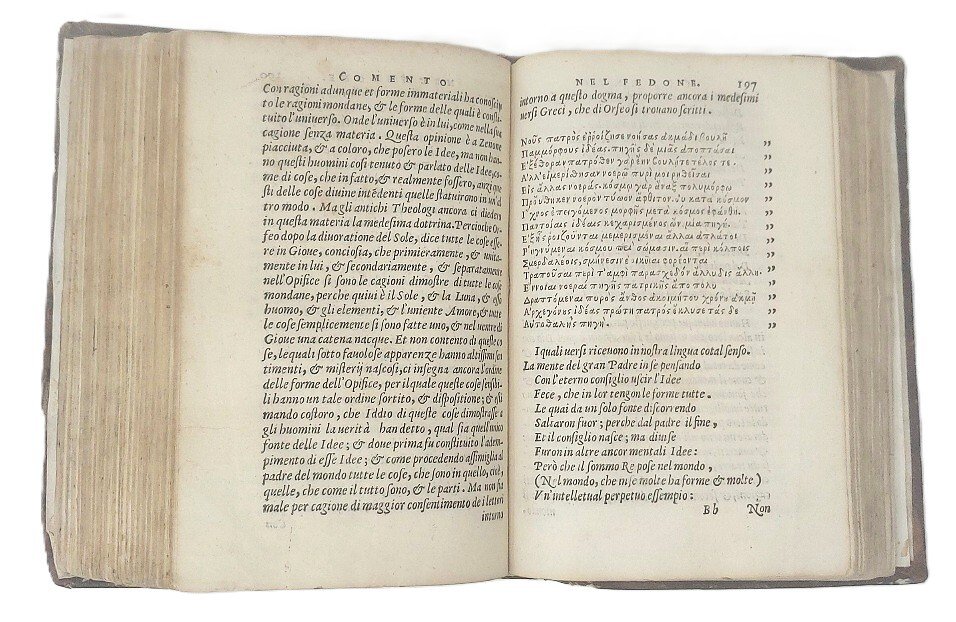 COMENTO
Con ragioni adunque et forme immateriali ha conosciu
to le ragioni mondane, & le forme delle quali è consti
tuito l'uniuerso. Onde l'uniuerso è in lui, come nella sua
cagione senza materia. Questa opinione è a Zenone
piacciuta, & a coloro, che posero le Idee, ma non han
no questi huomini cosi tenuto & parlato delle Idee, co
me di cose, che in fatto, & realmente fossero, anzi que
sti delle cose diuine intēdenti quelle statuirono in un'al
tro modo. Ma gli antichi Theologi ancora ci diedero
in questa materia la medesima dottrina. Percioche Or
feo dopo la diuoratione del Sole, dice tutte le cose esse
re in Gioue, conciosia, che primieramente, & unita-
mente in lui, & secondariamente, & separatamente
nell'Opifice si sono le cagioni dimostre di tutte le cose
mondane, perche quiui è il Sole, & la Luna, & esso
huomo, & gli elementi, & l'uniente Amore, & tutte
le cose semplicemente si son fatte uno, & nel uentre di
Gioue una catena nacque. Et non contento di queste co
se, le quali sotto fauolose apparenze hanno altissimi sen
timenti, & misterij nascosi, ci insegna ancora l'ordine
delle forme dell'Opifice, per il quale queste cose sensibi-
li hanno un tale ordine sortito, & dispositione; & esti
mando costoro, che Iddio di queste cose dimostrasse a
gli huomini la uerità han detto, qual sia quell'unico
fonte delle Idee; & doue prima fu constituito l'adem-
pimento di esse Idee; & come procedendo assimiglia al
padre del mondo tutte le cose, che sono in quello, cioè,
quelle, che come il tutto sono, & le parti. Ma non sia
male per cagione di maggior consentimento de i lettori
intorno
NEL FEDONE. 197
intorno a questo dogma, proporre ancora i medesimi
uersi Greci, che di Orfeo si trouano scritti.
Νοῦς πατρὸς ἐῤῥοίζησε νοήσας ἀκμάδι βουλῇ
Παμμόρφους ἰδέας. πηγῆς δὲ μιᾶς ἀποπτᾶσαι
Ἐξέθορον πατρόθεν γὰρ ἔην βουλήτε τέλος τε.
Ἀλλ' ἐμερίσθησαν νοερῷ πυρὶ μοιρηθεῖσαι
Εἰς ἄλλας νοεράς. κόσμῳ γὰρ ἄναξ πολυμόρφῳ
Προύθηκεν νοερὸν τύπον ἄφθιτον. οὗ κατὰ κόσμον
Ἴχνος ἐπειγόμενος μορφῆς μετὰ κόσμος ἐφάνθη.
Παντοίαις ἰδέαις κεχαρισμένος ὧν μία πηγὴ.
Ἐξ ἧς ῥοιζοῦνται μεμερισμέναι ἄλλαι ἄπλατοι
Ῥηγνύμεναι κόσμου περὶ σώμασιν. αἳ περὶ κόλποις
Σμερδαλέοις, σμήνεσιν ἐοικυῖαι φορέονται
Τραποῦσαι περὶ τ' ἀμφὶ παρασχεδὸν ἄλλυδις ἄλλη.
Ἔννοιαι νοεραὶ πηγῆς πατρικῆς ἀπο πολὺ
Δραπτόμεναι πυρὸς ἄνθος ἀκοιμήτου χρόνου ἀκμῇ
Ἀρχεγόνες ἰδέας πρώτη πατρὸς ἔκλυσε τάς δε
Αὐτοθαλὴς πηγή.
I quali uersi riceuono in nostra lingua cotal senso.
La mente del gran Padre in se pensando
Con l'eterno consiglio uscir l'Idee
Fece, che in lor tengon le forme tutte.
Le quai da un solo fonte discorrendo
Saltaron fuor; perche dal padre il fine,
Et il consiglio nasce; ma diuise
Furon in altre ancor mentali Idee:
Però che il sommo Re pose nel mondo,
(Nel mondo, che in se molte ha forme & molte)
Vn'intellettual perpetuo essempio:
Bb Non